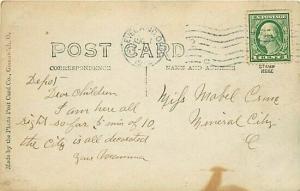 POST CARD
CORRESPONDENCE
NAME AND ADDRESS
Made by the Photo Post Card Co., Greenwich, O.
HERE
Depot
Dear Children
I am here all
right so far 5 min of 10,
the city is all decorated
your
Miss Mabel
Mineral City
O